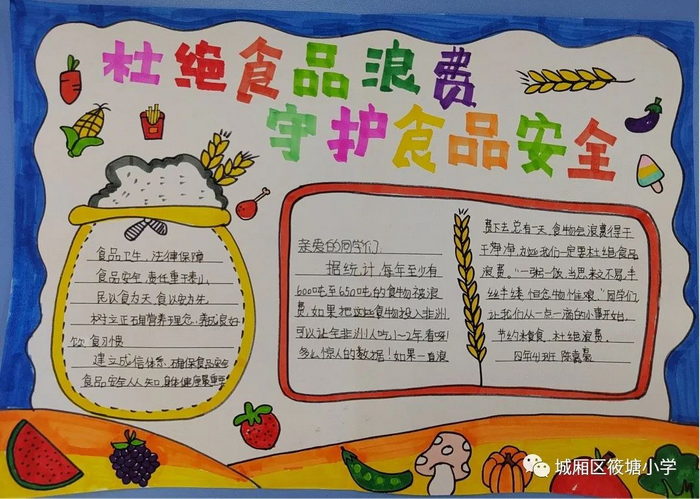 杜绝食品浪费
守护食品安全
食品卫生,法律保障
食品安全,责任重于泰山
民以食为天,食以安为先
树立正确营养理念,养成良好
饮食习惯
建立成信体系,确保食品安全
食品安全人人知,身体健康最重要
亲爱的同学们:
据统计,每年至少有
600吨至650吨的食物被浪
费,如果把这些食物投入非洲
可以让全非洲人吃1~2年看呀!
多么惊人的数据!如果一直浪
费下去,总有一天,食物会浪费得干
干净净,为此我们一定要杜绝食品
浪费。“一粥一饭,当思来之不易,半
丝半缕,恒念物惟艰。”同学们
让我们从一点一滴的小事开始,
节约粮食,杜绝浪费。
四年4班 陈
城厢区筱塘小学